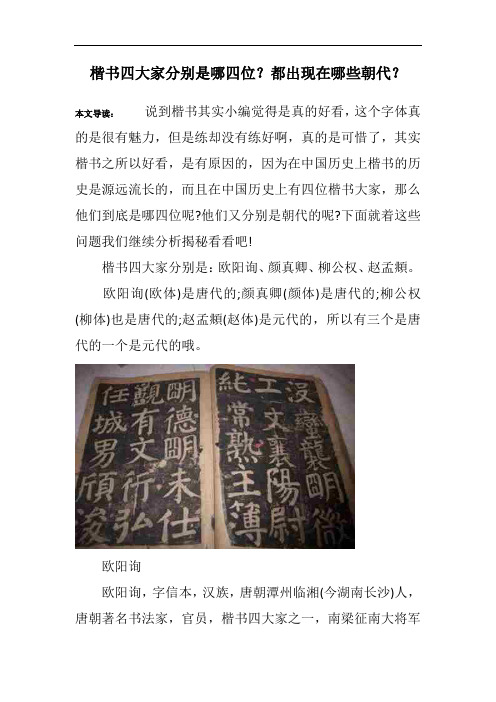 楷书四大家分别是哪四位？都出现在哪些朝代？
本文导读： 说到楷书其实小编觉得是真的好看，这个字体真
的是很有魅力，但是练却没有练好啊，真的是可惜了，其实
楷书之所以好看，是有原因的，因为在中国历史上楷书的历
史是源远流长的，而且在中国历史上有四位楷书大家，那么
他们到底是哪四位呢?他们又分别是朝代的呢?下面就着这些
问题我们继续分析揭秘看看吧!
楷书四大家分别是：欧阳询、颜真卿、柳公权、赵孟頫。
欧阳询(欧体)是唐代的;颜真卿(颜体)是唐代的;柳公权
(柳体)也是唐代的;赵孟頫(赵体)是元代的，所以有三个是唐
代的一个是元代的哦。
没明微
工文襄陽尉
純常熟主簿
明德明未仕
觀有文行弘
任城男浚
欧阳询
欧阳询，字信本，汉族，唐朝潭州临湘(今湖南长沙)人，
唐朝著名书法家，官员，楷书四大家之一，南梁征南大将军